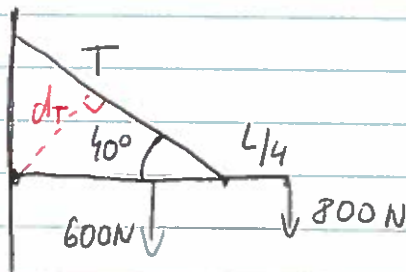 T
dT
40°
L/4
600N
800 N